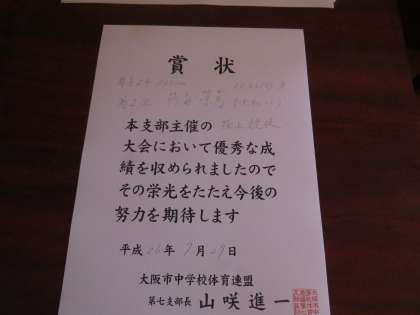 賞状
本支部主催の 陸上競技
大会において優秀な成
績を収められましたので
その栄光をたたえ今後の
努力を期待します
平成 26 年 7 月 29 日
大阪市中学校体育連盟
第七支部長 山咲進一